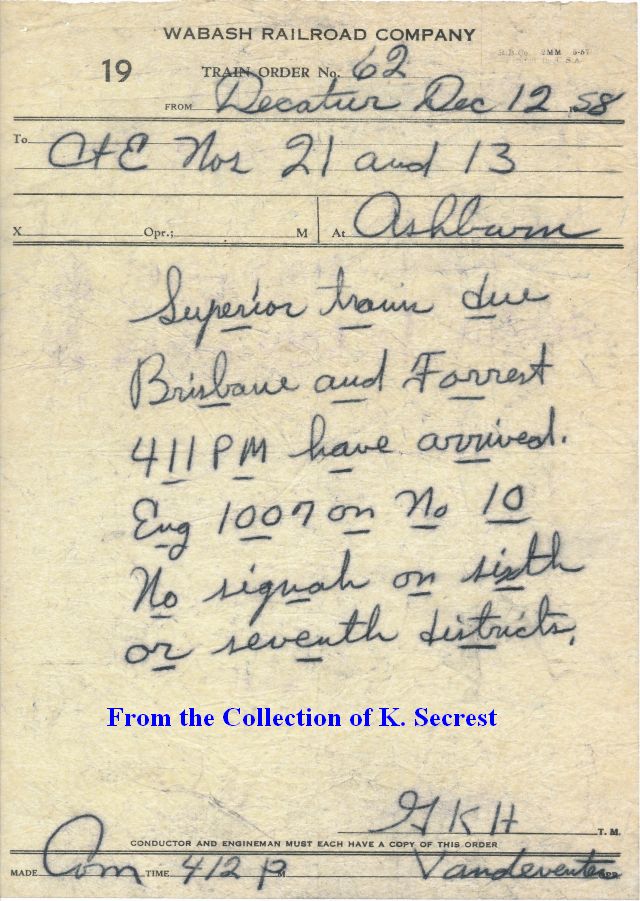 WABASH RAILROAD COMPANY
19 TRAIN ORDER No. 62
FROM Decatur Dec 12, 58
To C+E Nos 21 and 13
X Opr.; M At Ashburn
Superior train due
Brisbane and Forrest
411 PM have arrived.
Eng 1007 on No 10
No signals on sixth
or seventh districts.
From the Collection of K. Secrest
G K H T. M.
CONDUCTOR AND ENGINEMAN MUST EACH HAVE A COPY OF THIS ORDER
MADE Com TIME 412 P M Vandeventer OPR.